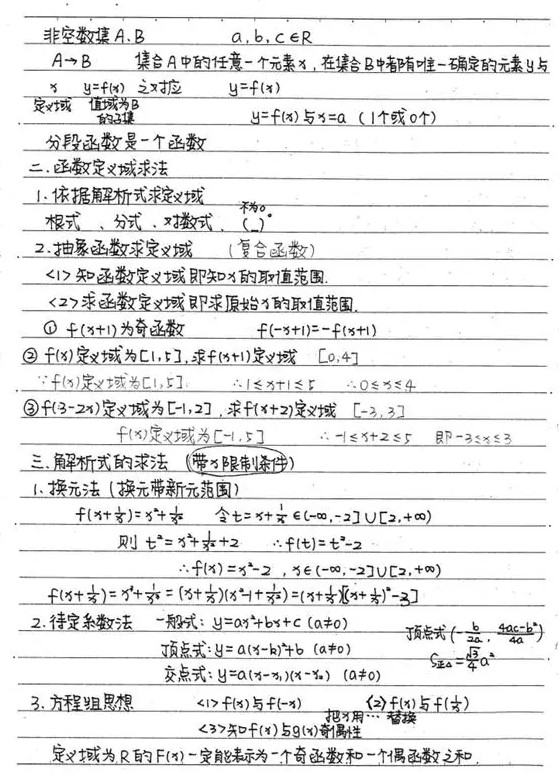 非空数集A、B a,b,c∈R
A→B 集合A中的任意一个元素x,在集合B中都有唯一确定的元素y与
x y=f(x) 之对应 y=f(x)
定义域 值域为B的子集 y=f(x)与x=a (1个或0个)
分段函数是一个函数
二.函数定义域求法
1.依据解析式求定义域
根式、分式、对数式、(_)° 不为0
2.抽象函数求定义域 (复合函数)
<1>知函数定义域即知x的取值范围.
<2>求函数定义域即求原始x的取值范围.
① f(x+1)为奇函数 f(-x+1)=-f(x+1)
② f(x)定义域为[1,5],求f(x+1)定义域 [0,4]
∵f(x)定义域为[1,5] ∴1≤x+1≤5 ∴0≤x≤4
③f(3-2x)定义域为[-1,2],求f(x+2)定义域 [-3,3]
f(x)定义域为[-1,5] ∴-1≤x+2≤5 即-3≤x≤3
三.解析式的求法 (带x限制条件)
1.换元法(换元带新元范围)
f(x+1/x)=x²+1/x² 令t=x+1/x∈(-∞,-2]∪[2,+∞)
则 t²=x²+1/x²+2 ∴f(t)=t²-2
∴f(x)=x²-2 , x∈(-∞,-2]∪[2,+∞)
f(x+1/x)=x³+1/x³=(x+1/x)(x²-1+1/x²)=(x+1/x)[(x+1/x)²-3]
2.待定系数法 一般式: y=ax²+bx+c (a≠0)
顶点式(-b/2a, 4ac-b²/4a)
顶点式: y=a(x-h)²+b (a≠0)
S正△=√3/4 a²
交点式: y=a(x-x₁)(x-x₂) (a≠0)
3.方程组思想 <1>f(x)与f(-x) <2>f(x)与f(1/x)
把x用…替换
<3>知f(x)与g(x)奇偶性
定义域为R的F(x)一定能表示为一个奇函数和一个偶函数之和.